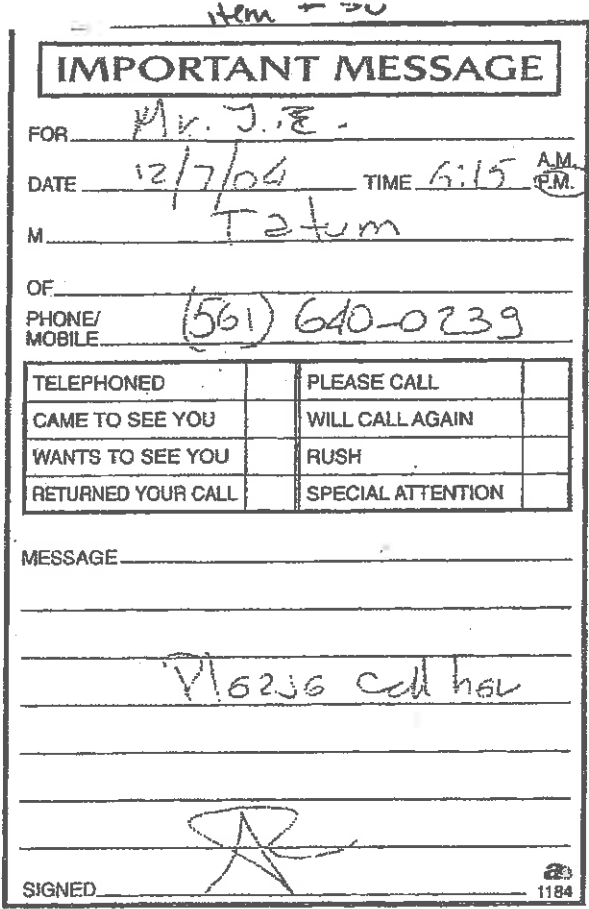 item # 30
IMPORTANT MESSAGE
FOR Mr. J.E.
DATE 12/7/04 TIME 6:15 A.M. P.M.
M Tatum
OF
PHONE/ MOBILE (561) 640-0239
TELEPHONED PLEASE CALL
CAME TO SEE YOU WILL CALL AGAIN
WANTS TO SEE YOU RUSH
RETURNED YOUR CALL SPECIAL ATTENTION
MESSAGE
Please call her
SIGNED
1184